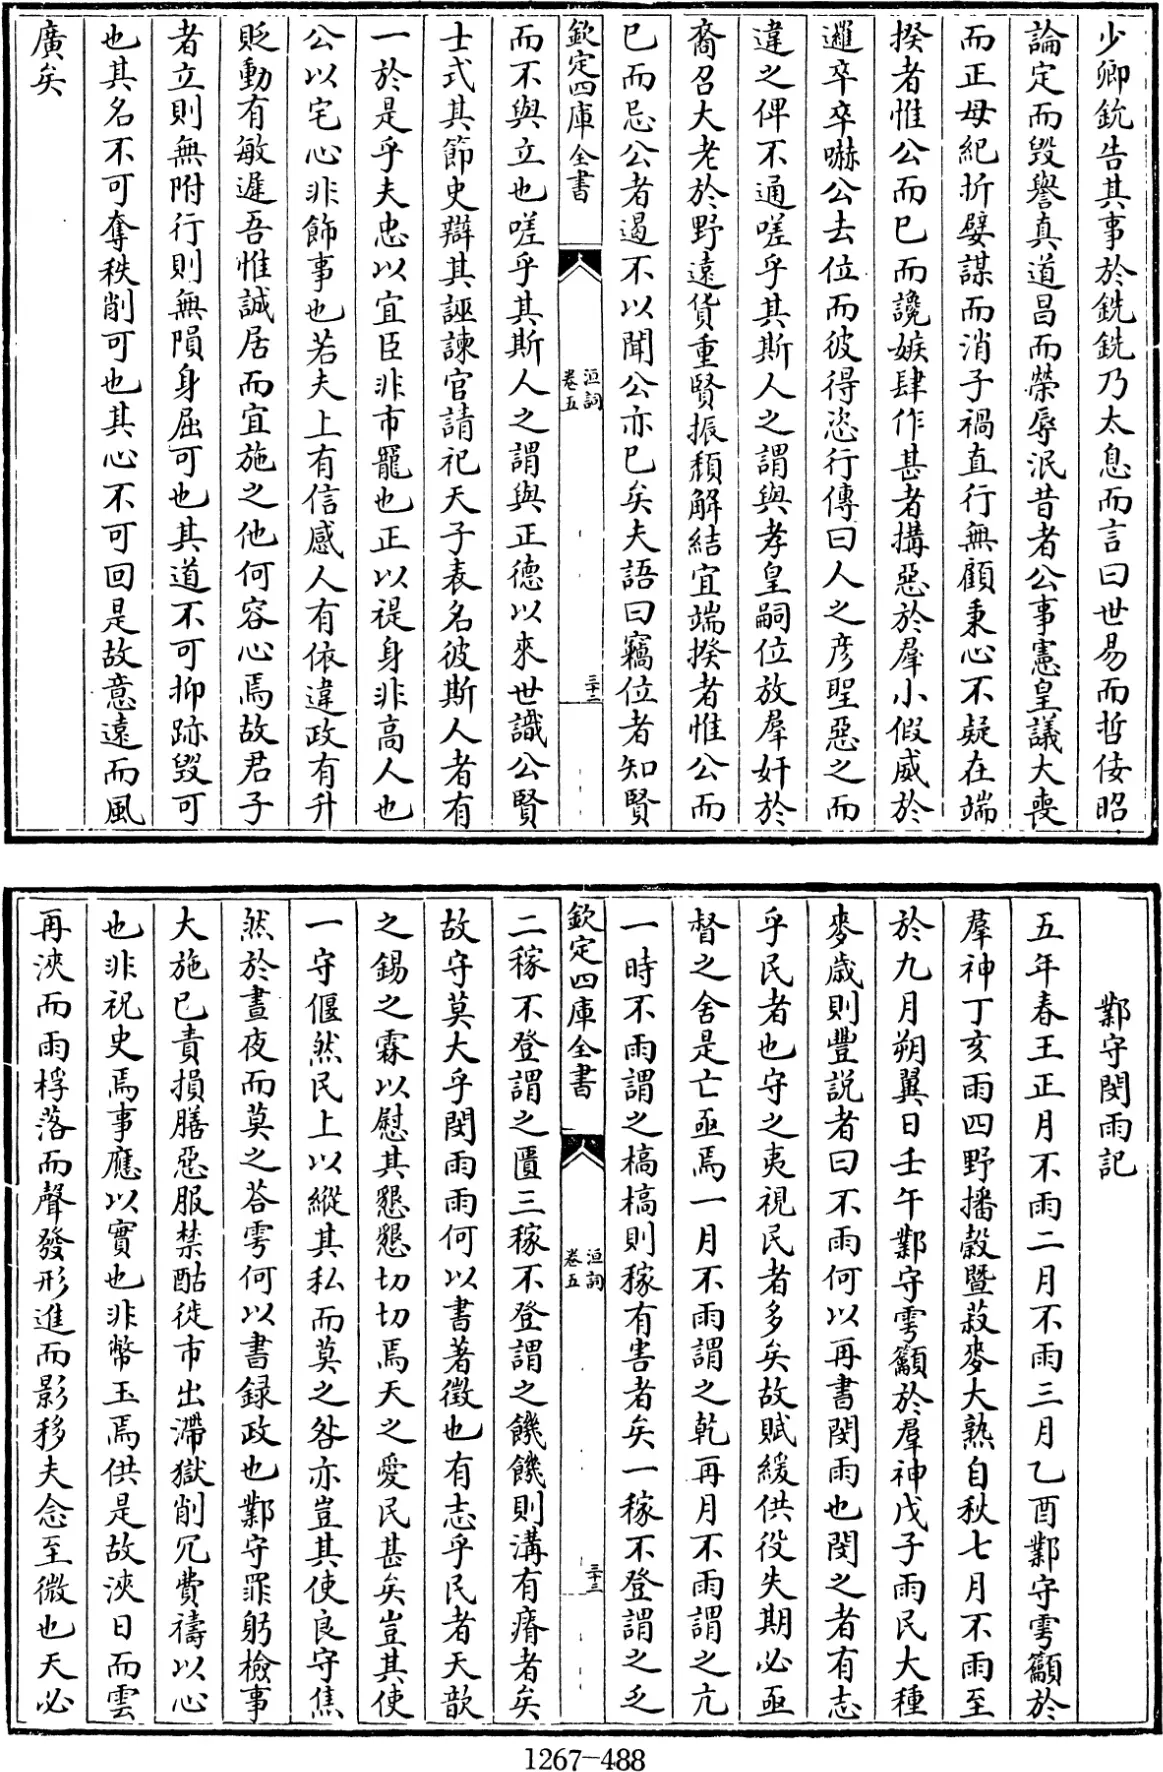 少卿鈗告其事於銑銑乃太息而言曰世易而哲佞昭
論定而毁譽真道昌而榮辱泯昔者公事憲皇議大喪
而正母紀折嬖謀而消子禍直行無顧秉心不疑在端
揆者惟公而已而讒嫉肆作甚者搆惡於羣小假威於
邏卒卒嚇公去位而彼得恣行傳曰人之彦聖惡之而
違之俾不通嗟乎其斯人之謂與孝皇嗣位放羣奸於
裔召大老於野遠貨重賢振頽解結宜端揆者惟公而
已而忌公者遏不以聞公亦已矣夫語曰竊位者知賢
欽定四庫全書
洹詞
卷五
三十二
而不與立也嗟乎其斯人之謂與正德以來世識公賢
士式其節史辯其誣諫官請祀天子表名彼斯人者有
一於是乎夫忠以宜臣非市寵也正以禔身非高人也
公以宅心非飾事也若夫上有信感人有依違政有升
貶動有敏遲吾惟誠居而宜施之他何容心焉故君子
者立則無附行則無隕身屈可也其道不可抑跡毁可
也其名不可奪秩削可也其心不可回是故意遠而風
廣矣
鄴守閔雨記
五年春王正月不雨二月不雨三月乙酉鄴守雩籲於
羣神丁亥雨四野播穀暨菽麥大熟自秋七月不雨至
於九月朔翼日壬午鄴守雩籲於羣神戊子雨民大種
麥歲則豐説者曰不雨何以再書閔雨也閔之者有志
乎民者也守之夷視民者多矣故賦緩供役失期必亟
督之舍是亡亟焉一月不雨謂之乾再月不雨謂之亢
一時不雨謂之槁槁則稼有害者矣一稼不登謂之乏
欽定四庫全書
洹詞
卷五
三十三
二稼不登謂之匱三稼不登謂之饑饑則溝有瘠者矣
故守莫大乎閔雨雨何以書著徵也有志乎民者天歆
之錫之霖以慰其懇懇切切焉天之愛民甚矣豈其使
一守偃然民上以縱其私而莫之咎亦豈其使良守焦
然於晝夜而莫之荅雩何以書録政也鄴守罪躬檢事
大施已責損膳惡服禁酤徙市出滯獄削冗費禱以心
也非祝史焉事應以實也非幣玉焉供是故浹日而雲
再浹而雨桴落而聲發形進而影移夫念至微也天必
1267-488